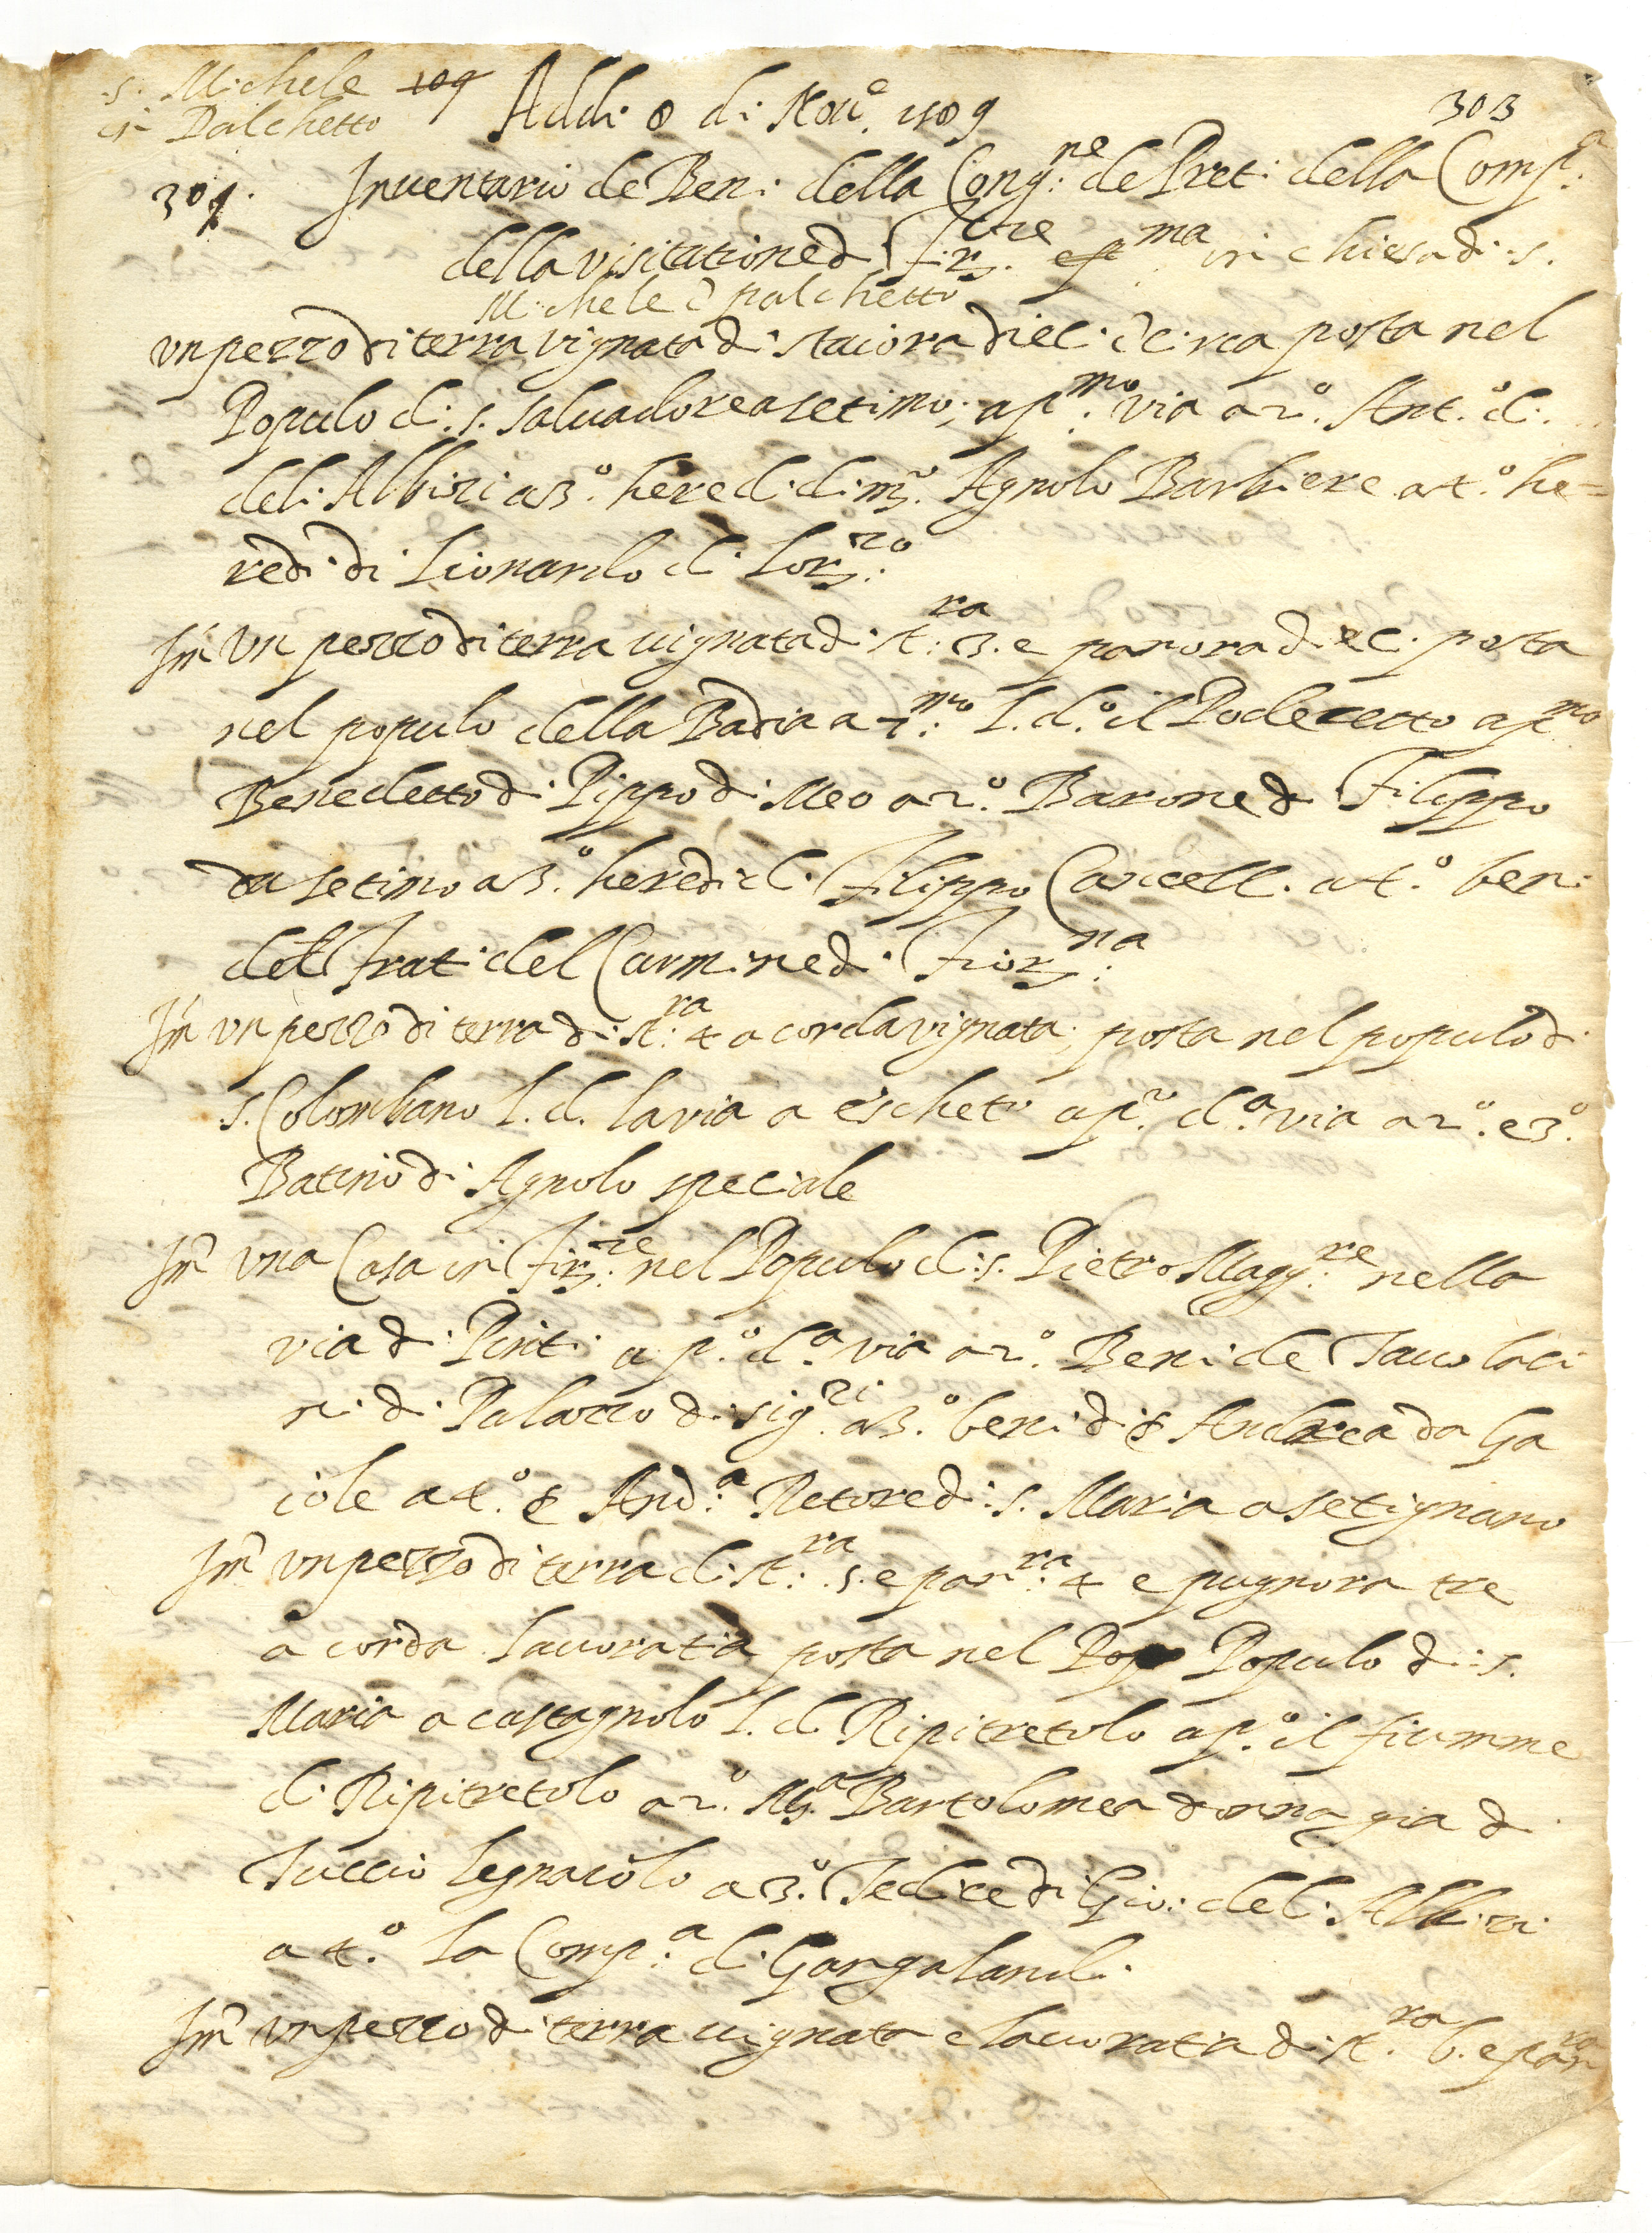 S. Michele 109
in Palchetto
Addi 8 di Nou.e 1509
303
309. Inventario de Beni della Cong:ne de Preti della Comp.a
della visitatione di Firze in chiesa di S.
Michele d palchetto
Vn pezzo di terra vignata di staiora dieci circa posta nel
Populo di S. Salvadore a Setimo; a p.mo via a 2.o Ant.o di
deli Albizi a 3.o heredi di m.o Agnolo Barbiere a 4.o he=
redi di Lionardo di Lorzo:
Im Vn pezzo di terra uignata di st:ra 3. e panora dieci posta
nel populo della Badia a 7.mo: l. d.o il Poderetto a p.mo
Benedetto di Pippo di Meo a 2.o Barone di Filippo
da Setimo a 3.o heredi di Filippo Cascell. a 4.o beni
deli frati del Carmine di Fiorna:
Im Vn pezzo di terra di st:ra 4 a corda vignata; posta nel populo di
S. Colombano l. d. la via a Escheti a p.o d.a via a 2.o e 3.o
Batino di Agnolo speciale
Im Vna Casa in Firze: nel Populo di S. Pietro Magg:re nella
via di Pinti a p.o d.a via a 2.o Beni de Tavolaci
ni di Palazzo di Sig.ri a 3.o beni di S Andrea da Ga
iole a 4.o S And.a Retore di S. Maria a Setignano
Im Vn pezzo di terra di st:ra 5. e pan:ra 4 e pugnora tre
a corda lauorata posta nel Pop Populo di S.
Maria a castagnolo l. d. Ripitretolo a p.o il fiumme
di Ripitretolo a 2.o M.a Bartolomea donna gia di
Tuccio legnaiolo a 3.o Tedice di Gio: deli Albizi
a 4.o la Comp.a di Gangalandi.
Im Vn pezzo di terra uignata e lauorata di st.ra 6. e panra